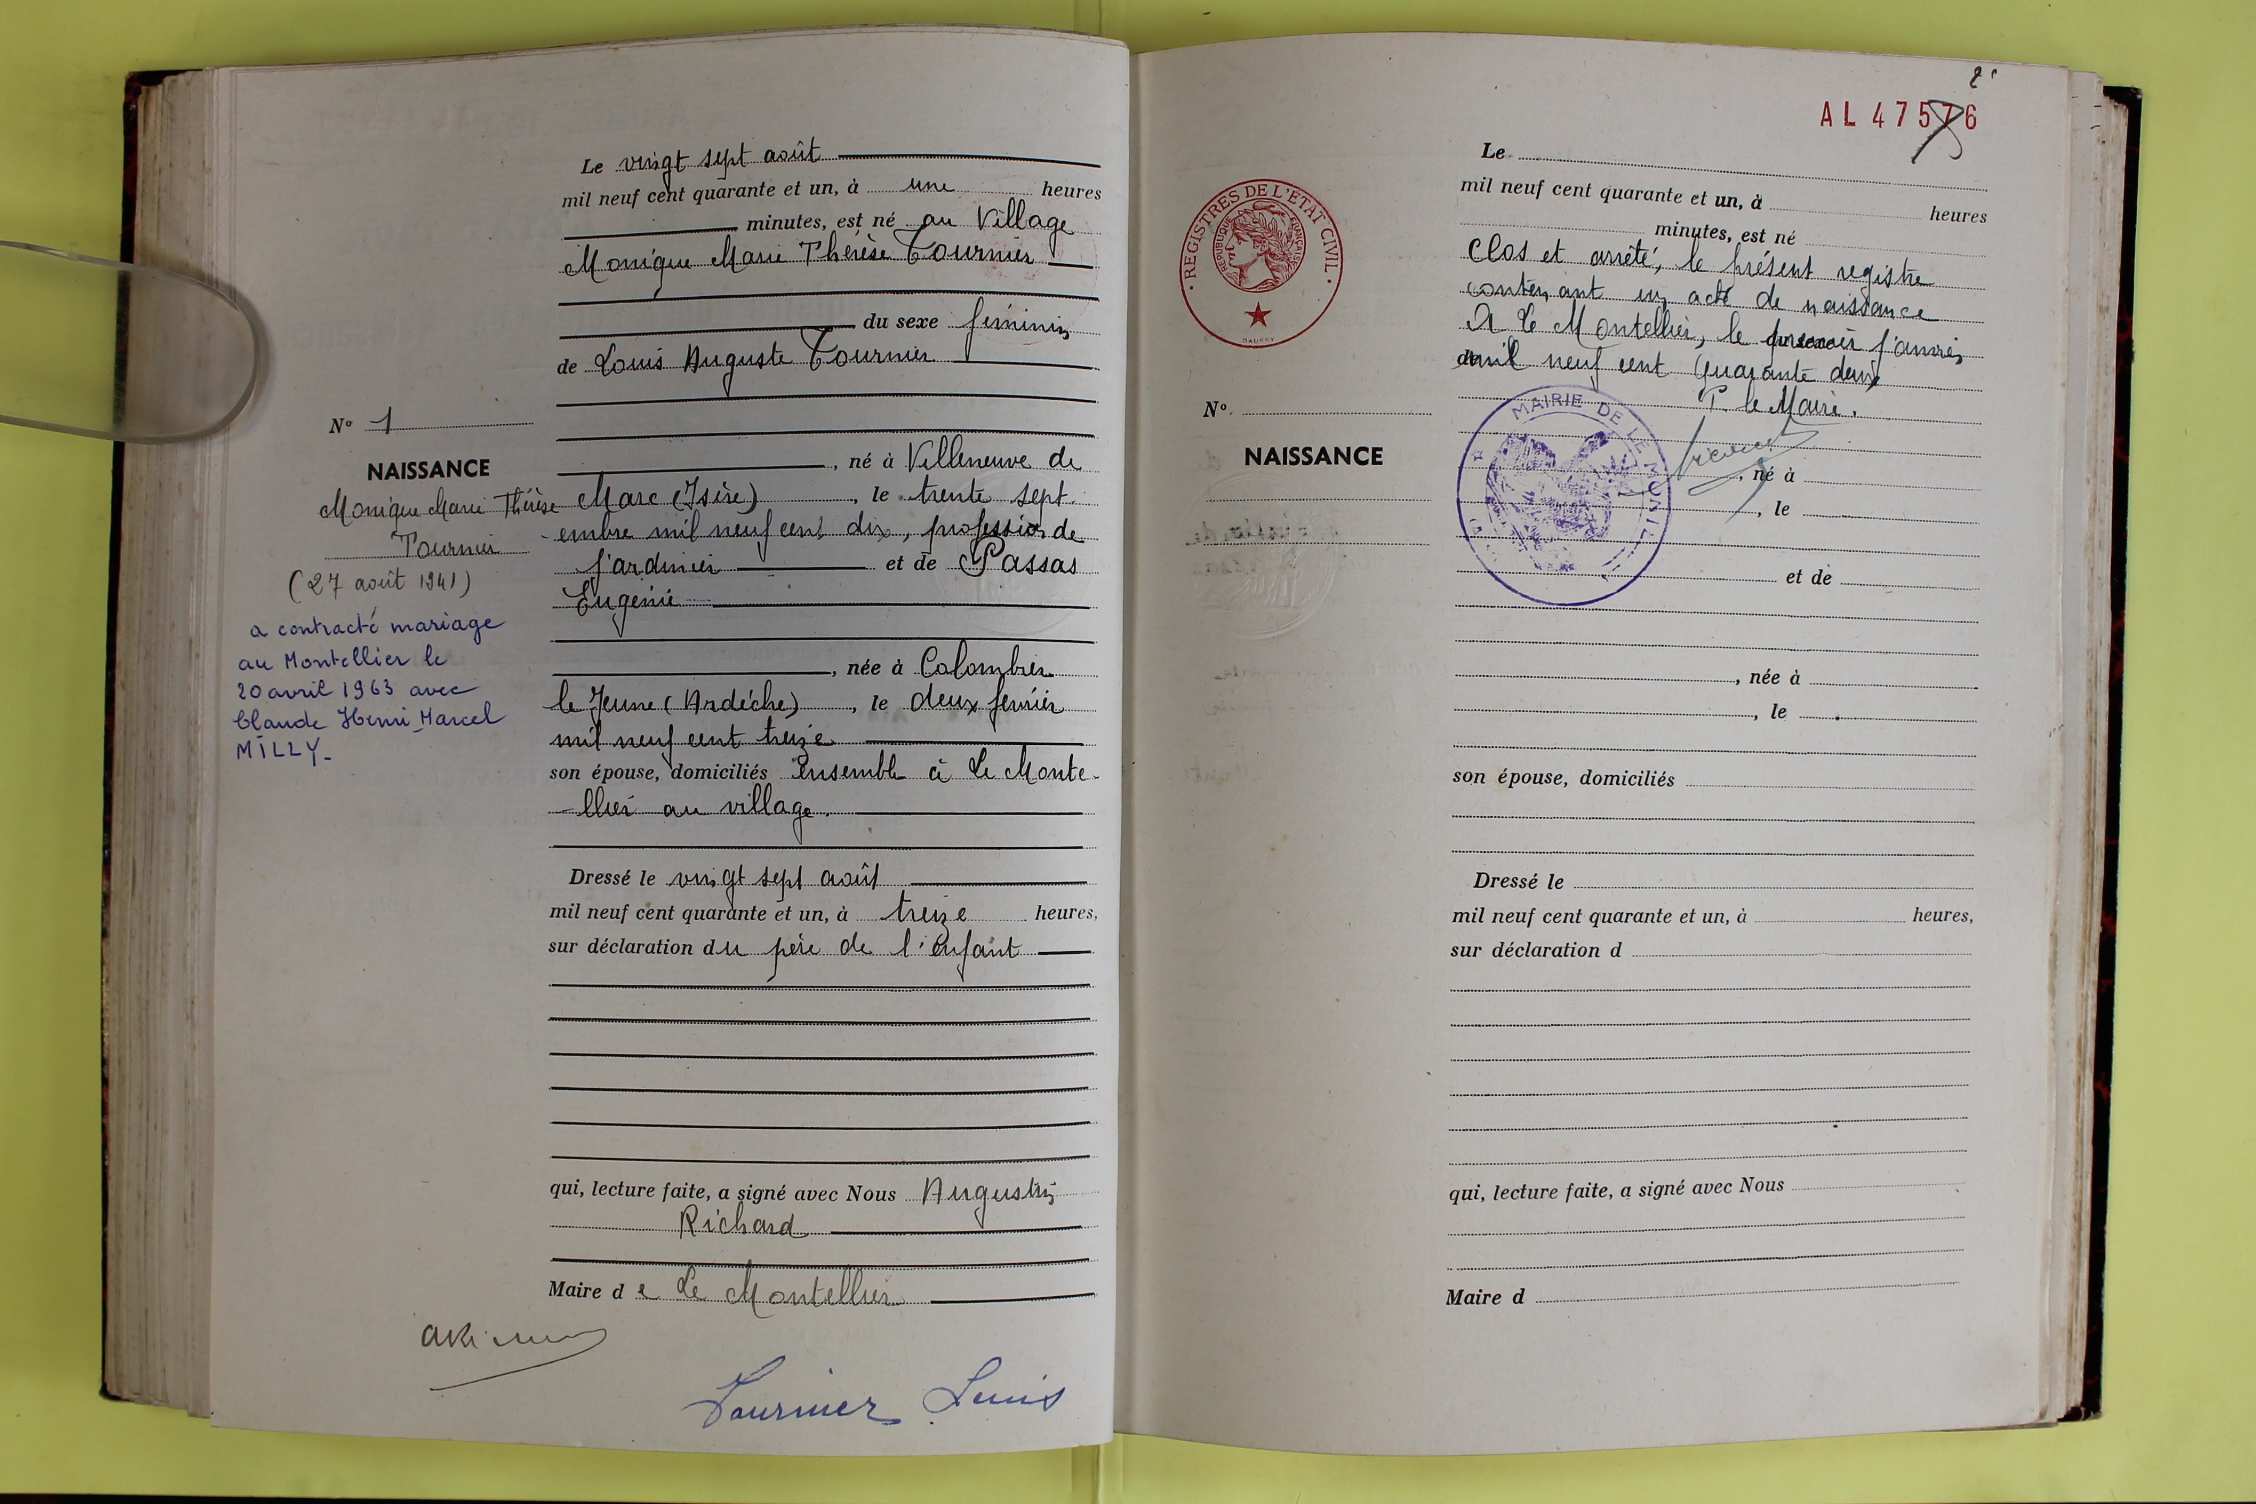 Le vingt sept août
mil neuf cent quarante et un, à une heures
minutes, est né au Village
Monique Marie Thérèse Tournier
du sexe féminin
de Louis Auguste Tournier
, né à Villeneuve de
Marc (Isère) , le trente sept
embre mil neuf cent dix, profession de
jardinier et de Passas
Eugénie
, née à Colombier
le Jeune (Ardéche) , le deux fevrier
mil neuf cent treize
son épouse, domiciliés ensemble à Le Monte-
-llier au village.
Dressé le vingt sept août
mil neuf cent quarante et un, à treize heures,
sur déclaration du père de l'enfant
qui, lecture faite, a signé avec Nous Augustin
Richard
Maire de Le Montellier
Tournier Louis
N° 1
NAISSANCE
Monique Marie Thérèse
Tournier
(27 août 1941)
a contracté mariage
au Montellier le
20 avril 1963 avec
Claude Henri Marcel
MILLY_
2
AL 47576
Le
mil neuf cent quarante et un, à heures
minutes, est né
Clos et arrêté, le présent registre
contenant un acte de naissance
A Le Montellier, le premier janvier
mil neuf cent quarante deux
P. le Maire.
, né à
, le
et de
, née à
, le
son épouse, domiciliés
Dressé le
mil neuf cent quarante et un, à heures,
sur déclaration d
qui, lecture faite, a signé avec Nous
Maire d
REGISTRES DE L'ÉTAT CIVIL
RÉPUBLIQUE FRANÇAISE
N°
NAISSANCE
MAIRIE DE LE MONTEL